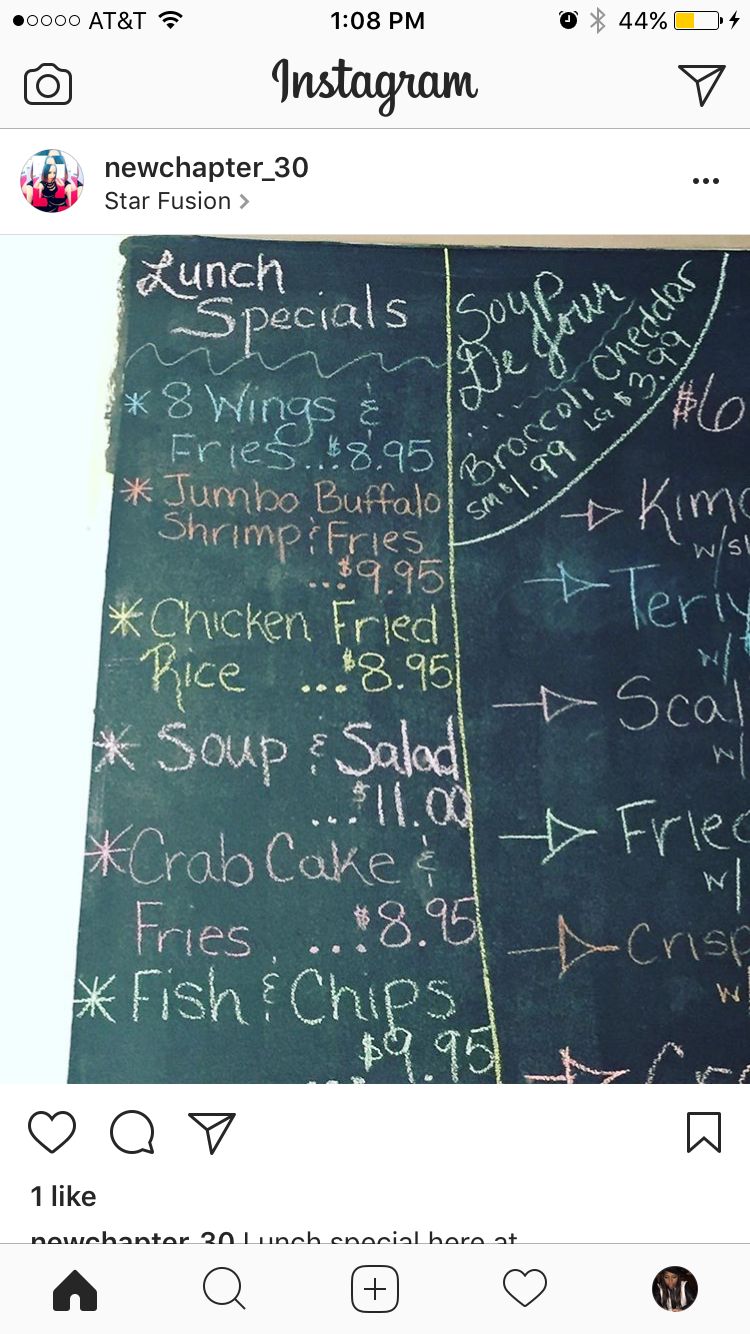 AT&T 1:08 PM 44%
Instagram
newchapter_30
Star Fusion
Lunch
Specials
* 8 Wings &
Fries...$8.95
* Jumbo Buffalo
Shrimp & Fries
...$9.95
* Chicken Fried
Rice ...$8.95
* Soup & Salad
...$11.00
* Crab Cake &
Fries ....$8.95
* Fish & Chips
...$9.95
Soup
De Jour
Broccoli Cheddar
SM $1.99 LG $3.99
$6
Kim
w/
Teri
w/
Scal
w/
Fried
w/
Crisp
w/
1 like
newchapter_30 Lunch special here at